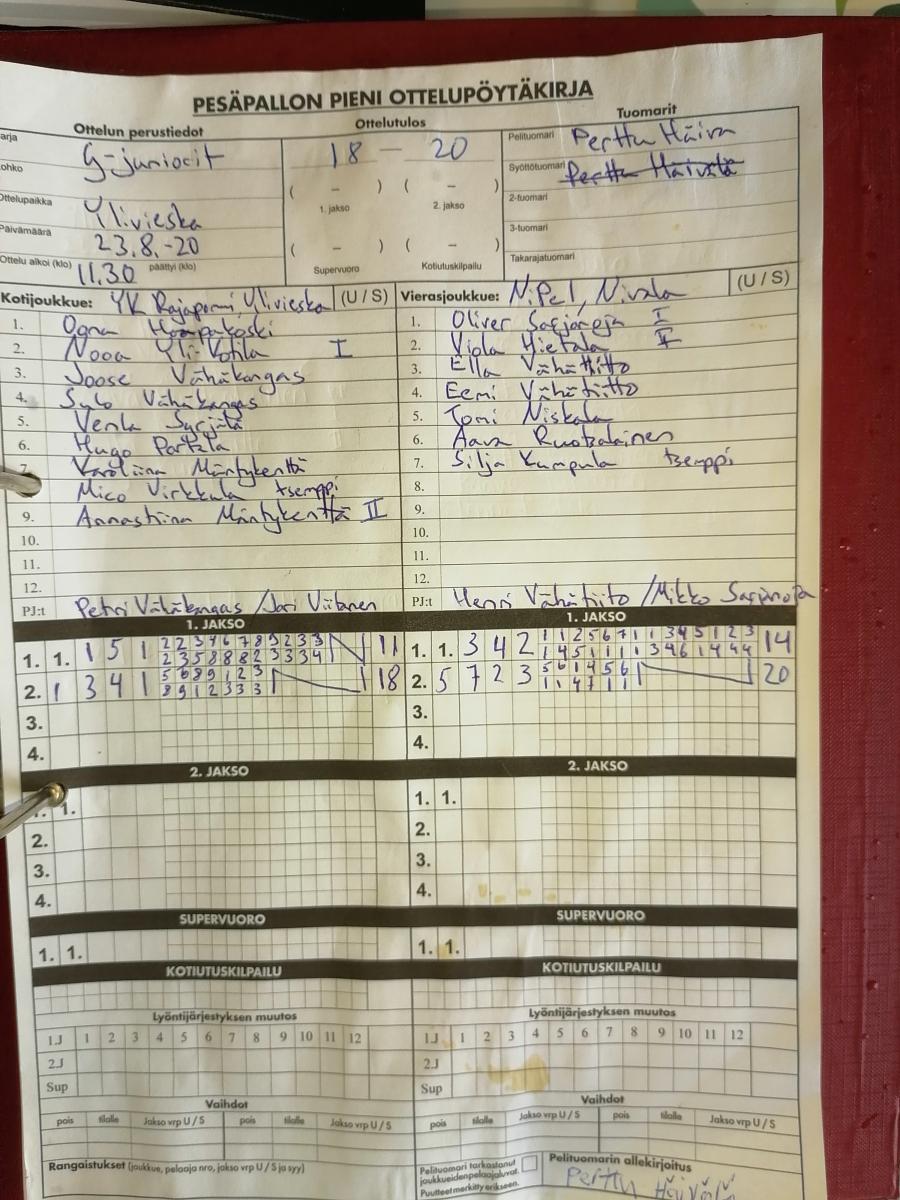 PESÄPALLON PIENI OTTELUPÖYTÄKIRJA
Ottelun perustiedot
Ottelutulos
Tuomarit
arja
G-juniorit
18 — 20
Pelituomari Perttu Häivä
ohko
Syöttötuomari Perttu
( – ) ( – )
1. jakso 2. jakso
2-tuomari
Ottelupaikka Ylivieska
3-tuomari
Päivämäärä 23.8.-20
( – ) ( – )
Takarajatuomari
Ottelu alkoi (klo) 11.30 päättyi (klo)
Supervuoro Kotiutuskilpailu
Kotijoukkue: YK Rajaporri, Ylivieska (U / S)
1. Ogna
2. Nooa Yli-Kotila I
3. Joose Vähäkangas
4. Sylo Vähäkangas
5. Venla Syrjälä
6. Hugo Partala
7. Karoliina Mäntykenttä
Mico Virkkula tsemppi
9. Annastiina Mäntykenttä II
10.
11.
12.
PJ:t Petri Vähäkangas / Jari Viitanen
Vierasjoukkue: NiPel, Nivala (U / S)
1. Oliver Sarjanoja I
2. Viola Hietala II
3. Ella Vähätiitto
4. Eemi Vähätiitto
5. Tomi Niskala
6. Aava Ruotsalainen
7. Silja Kumpula tsemppi
8.
9.
10.
11.
12.
PJ:t Henri Vähätiitto / Mikko Sarjanoja
1. JAKSO
1. 1. 1 5 1 2 2 3 4 6 7 8 9 2 3 3 11
2 3 5 8 8 8 2 3 3 3 4
2. 1 3 4 1 5 6 8 9 1 2 3 18
8 9 1 2 3 3 3
3.
4.
1. JAKSO
1. 1. 3 4 2 1 1 2 5 6 7 1 1 3 4 5 1 2 3 14
1 4 5 1 1 1 1 3 4 6 1 4 4 4
2. 5 7 2 3 5 6 1 4 5 6 20
1 1 4 7 1 1
3.
4.
2. JAKSO
1. 1.
2.
3.
4.
2. JAKSO
1. 1.
2.
3.
4.
SUPERVUORO
1. 1.
SUPERVUORO
1. 1.
KOTIUTUSKILPAILU
KOTIUTUSKILPAILU
Lyöntijärjestyksen muutos
1.J 1 2 3 4 5 6 7 8 9 10 11 12
2.J
Sup
Lyöntijärjestyksen muutos
1.J 1 2 3 4 5 6 7 8 9 10 11 12
2.J
Sup
Vaihdot
pois tilalle Jakso vrp U / S pois tilalle Jakso vrp U / S
Vaihdot
pois tilalle Jakso vrp U / S pois tilalle Jakso vrp U / S
Rangaistukset (joukkue, pelaaja nro, jakso vrp U / S ja syy)
Pelituomari tarkastanut
joukkueiden pelaajaluvat.
Puutteet merkitty erikseen.
Pelituomarin allekirjoitus
Perttu